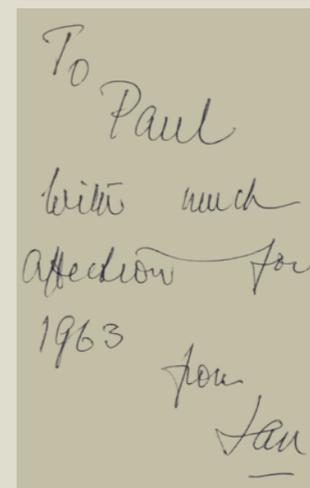 To
Paul
with much
affection for
1963
from
Ian